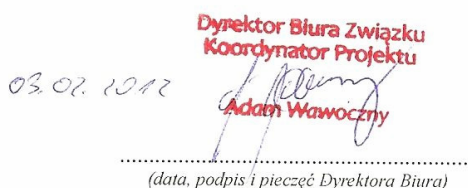 Dyrektor Biura Związku
Koordynator Projektu
03.02.2012
Adam Wawoczny
(data, podpis i pieczęć Dyrektora Biura)